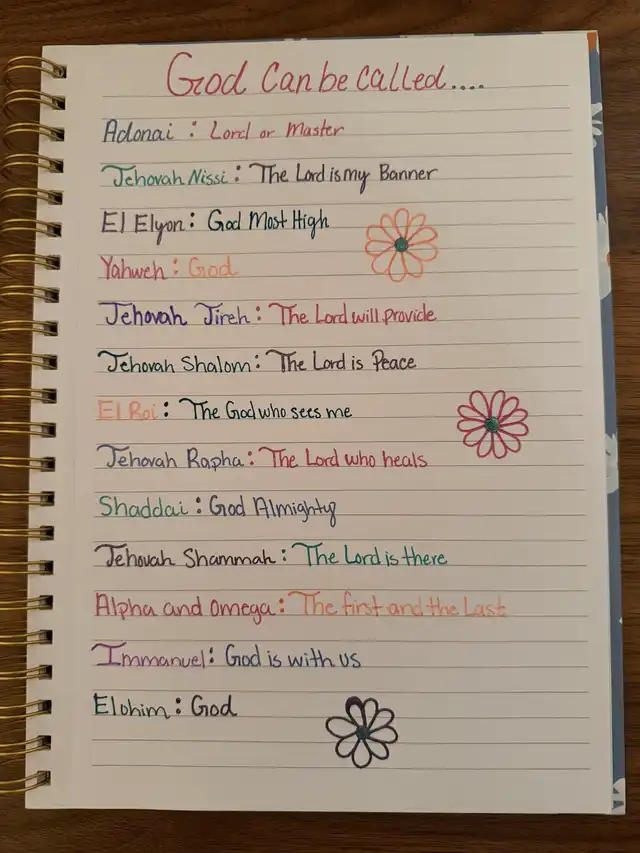 God Can be Called....
Adonai : Lord or Master
Jehovah Nissi : The Lord is my Banner
El Elyon : God Most High
Yahweh : God
Jehovah Jireh : The Lord will provide
Jehovah Shalom : The Lord is Peace
El Roi : The God who sees me
Jehovah Rapha : The Lord who heals
Shaddai : God Almighty
Jehovah Shammah : The Lord is there
Alpha and Omega : The first and the Last
Immanuel : God is with us
Elohim : God